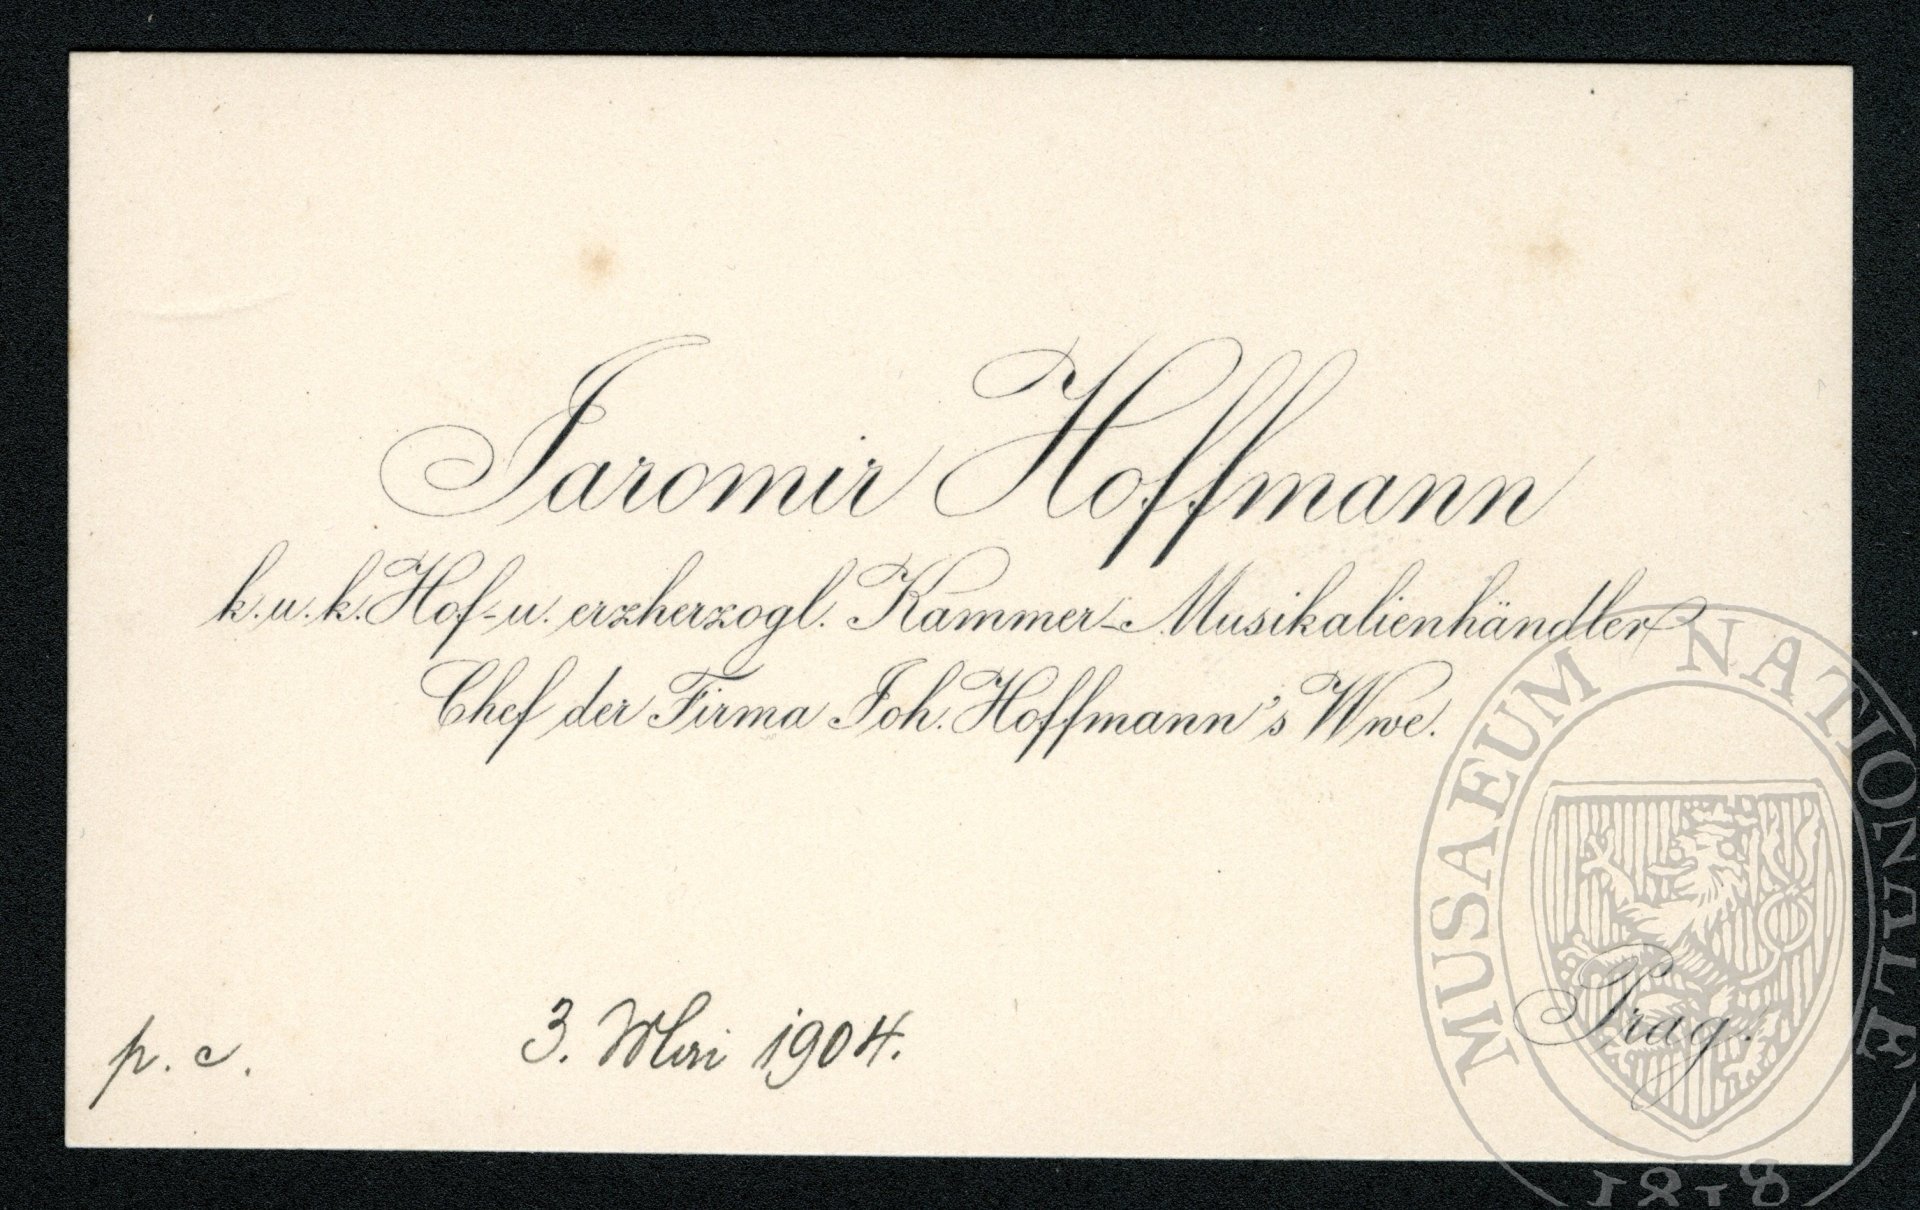 Jaromir Hoffmann
k. u. k. Hof- u. erzherzogl. Kammer-Musikalienhändler
Chef der Firma Joh. Hoffmann's Wwe.
p. c.
3. Mai 1904.
Prag.
MUSAEUM NATIONALE
1818